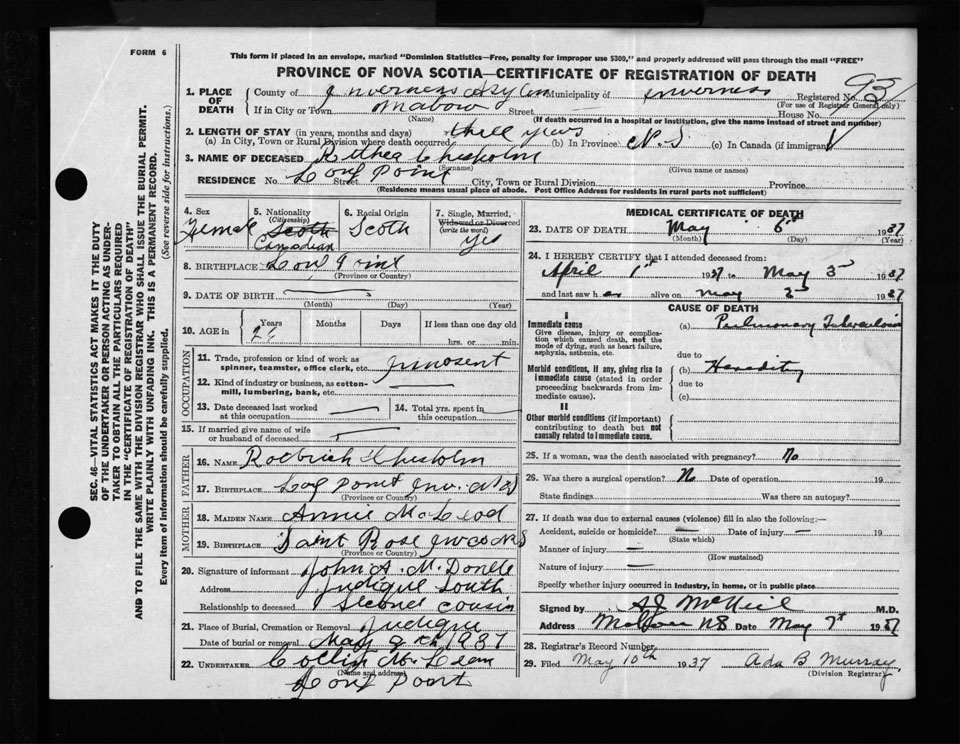 FORM 6
This form if placed in an envelope, marked "Dominion Statistics—Free, penalty for improper use $300," and properly addressed will pass through the mail "FREE"
PROVINCE OF NOVA SCOTIA—CERTIFICATE OF REGISTRATION OF DEATH
SEC. 46—VITAL STATISTICS ACT MAKES IT THE DUTY
OF THE UNDERTAKER OR PERSON ACTING AS UNDER-
TAKER TO OBTAIN ALL THE PARTICULARS REQUIRED
IN THE "CERTIFICATE OF REGISTRATION OF DEATH"
AND TO FILE THE SAME WITH THE DIVISION REGISTRAR WHO SHALL ISSUE THE BURIAL PERMIT.
WRITE PLAINLY WITH UNFADING INK. THIS IS A PERMANENT RECORD.
Every item of information should be carefully supplied. (See reverse side for instructions.)
1. PLACE OF DEATH County of Inverness Asylum Municipality of Inverness Registered No. 93
(For use of Registrar General only)
If in City or Town Mabou Street House No.
(Name) (If death occurred in a hospital or institution, give the name instead of street and number)
2. LENGTH OF STAY (in years, months and days) three years
(a) In City, Town or Rural Division where death occurred (b) In Province N.S (c) In Canada (if immigrant)
3. NAME OF DECEASED Chisholm
(Surname) (Given name or names)
RESIDENCE No. Long Point Street City, Town or Rural Division Province
(Residence means usual place of abode. Post Office Address for residents in rural parts not sufficient)
4. Sex Female
5. Nationality (Citizenship) Scoth Canadian
6. Racial Origin Scoth
7. Single, Married, Widowed or Divorced (write the word) yes
8. BIRTHPLACE Long Point
(Province or Country)
9. DATE OF BIRTH —
(Month) (Day) (Year)
10. AGE in Years Months Days If less than one day old
hrs. or min.
OCCUPATION
11. Trade, profession or kind of work as spinner, teamster, office clerk, etc.
12. Kind of industry or business, as cotton-mill, lumbering, bank, etc. —
13. Date deceased last worked at this occupation —
14. Total yrs. spent in this occupation —
15. If married give name of wife or husband of deceased —
FATHER
16. NAME Chisholm
17. BIRTHPLACE Log Point Inv. Co N S
(Province or Country)
MOTHER
18. MAIDEN NAME Annie McLeod
19. BIRTHPLACE Saint Rose Inv co N S
(Province or Country)
20. Signature of informant John A. McDonell
Address Judique South
Relationship to deceased second cousin
21. Place of Burial, Cremation or Removal Judique
Date of burial or removal May 9th 1937
22. UNDERTAKER McLean
(Name and address)
Long Point
MEDICAL CERTIFICATE OF DEATH
23. DATE OF DEATH May 6th 1937
(Month) (Day) (Year)
24. I HEREBY CERTIFY that I attended deceased from:
April 1st 1937 to May 3rd 1937
and last saw h er alive on May 1937
CAUSE OF DEATH
I
Immediate cause
Give disease, injury or complication which caused death, not the mode of dying, such as heart failure, asphyxia, asthenia, etc.
(a) Pulmonary Tuberculosis
due to
Morbid conditions, if any, giving rise to immediate cause (stated in order proceeding backwards from immediate cause).
(b) Heredity
due to
(c)
II
Other morbid conditions (if important) contributing to death but not causally related to immediate cause.
25. If a woman, was the death associated with pregnancy? No
26. Was there a surgical operation? No Date of operation 19
State findings Was there an autopsy?
27. If death was due to external causes (violence) fill in also the following:—
Accident, suicide or homicide? — Date of injury — 19
(State which)
Manner of injury —
(How sustained)
Nature of injury —
Specify whether injury occurred in industry, in home, or in public place
Signed by A J McNeil M.D.
Address Mabou N S Date May 7th 1937
28. Registrar's Record Number
29. Filed May 10th 1937 Ada B Murray
(Division Registrar)